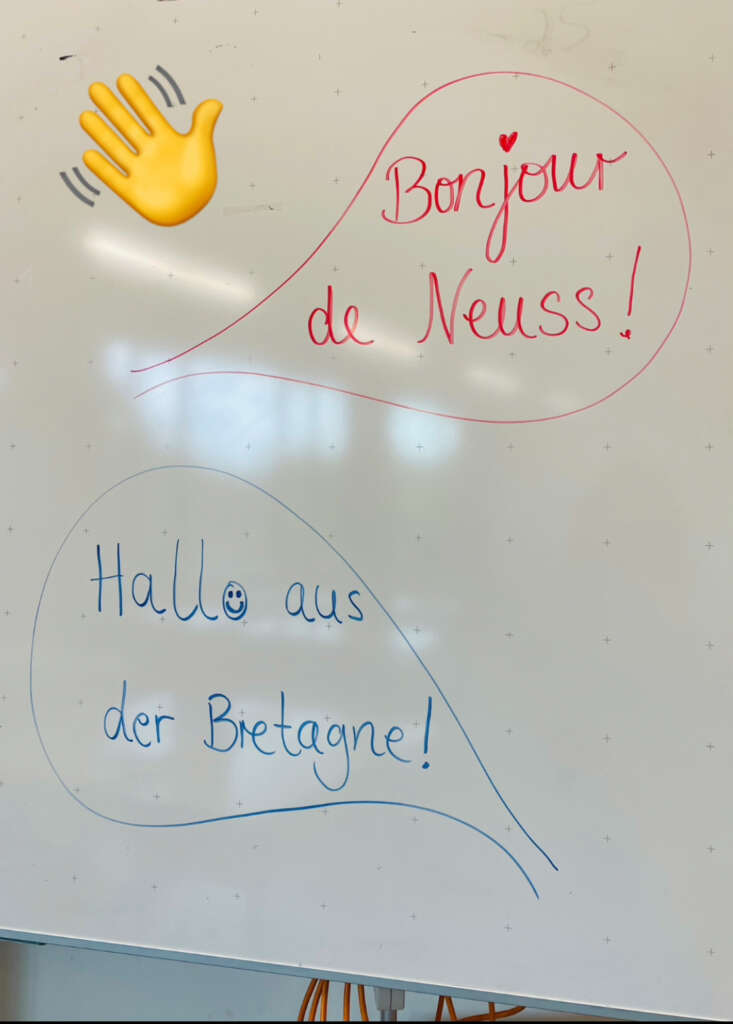 Bonjour
de Neuss!
Hallo aus
der Bretagne!